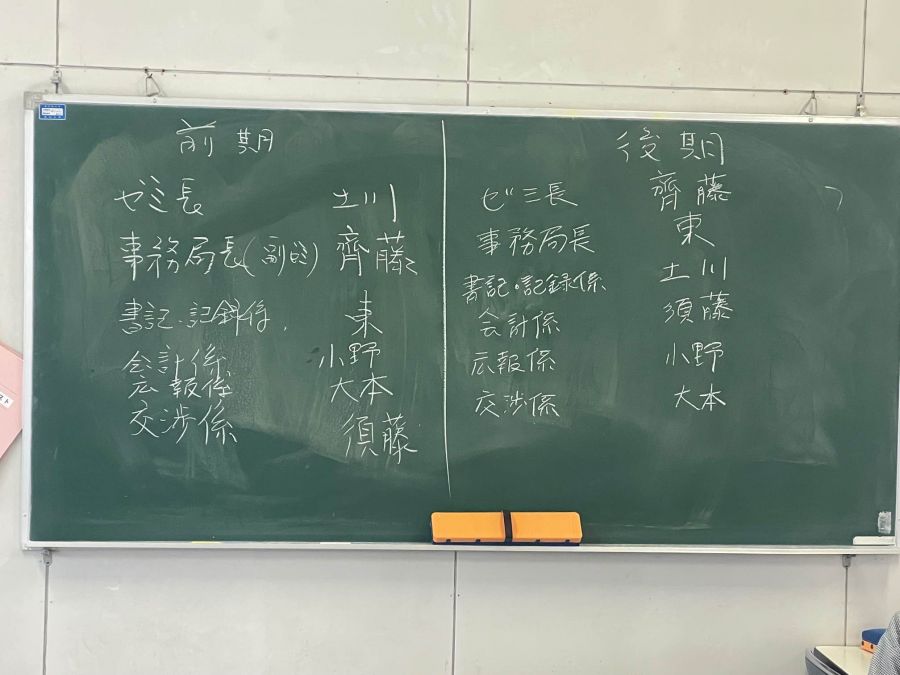 前期
ゼミ長 土川
事務局長(副ゼミ) 齊藤
書記・記録係 東
会計係 小野
広報係 大本
交渉係 須藤
後期
ゼミ長 齊藤
事務局長 東
書記・記録係 土川
会計係 須藤
広報係 小野
交渉係 大本